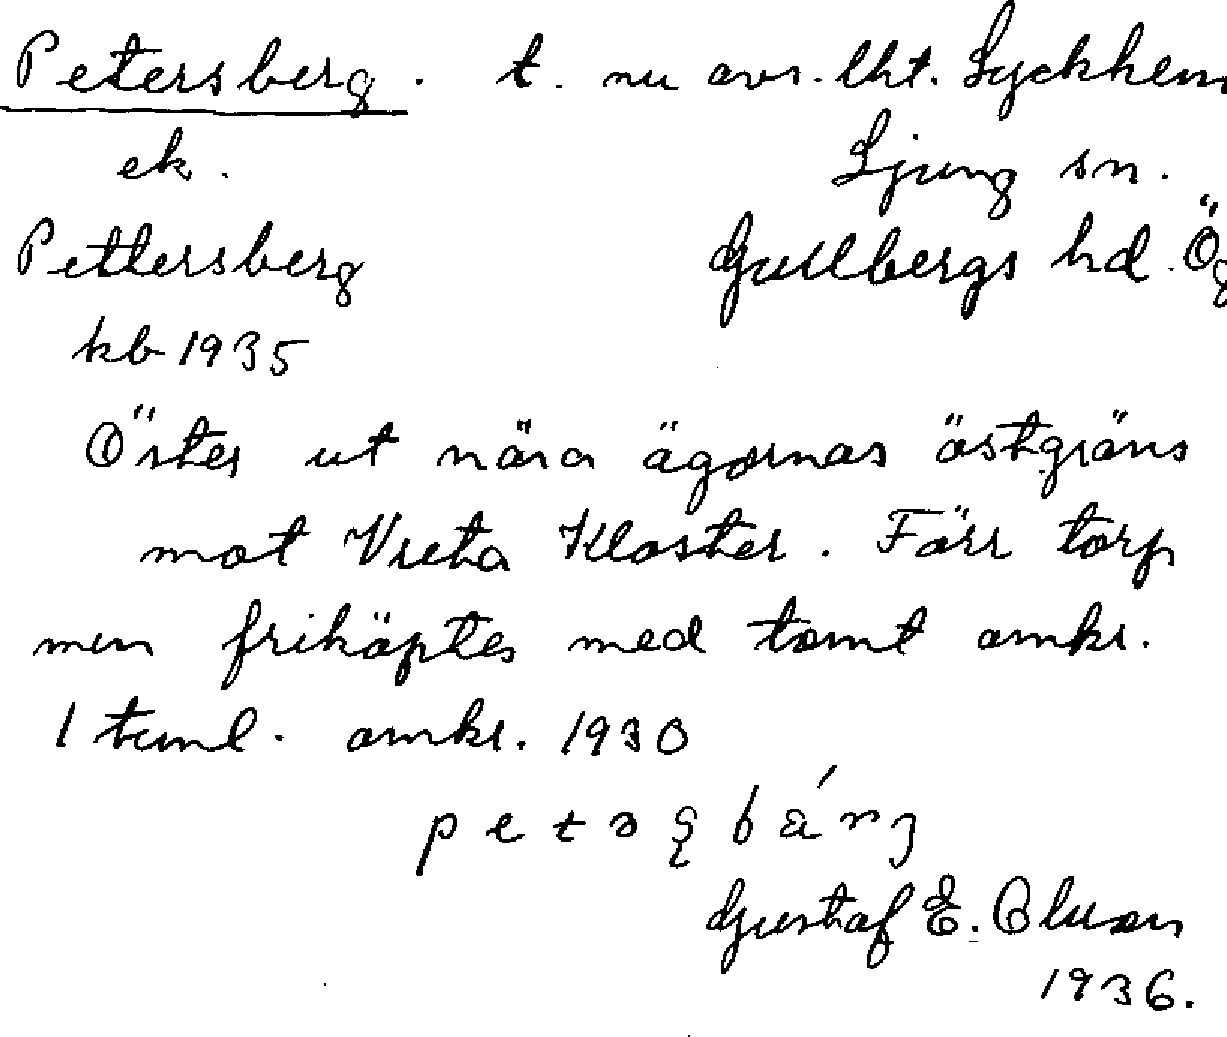 Petersberg. t. nu avs. lht. Lyckhem
ek. Ljung sn.
Pettersberg Gullbergs hd. Ög
kb 1935
Öster ut nära ägornas östgräns
mot Vreta Kloster. Förr torp
men friköptes med tomt omkr.
1 tunnl. omkr. 1930
Gustaf E. Olsson
1936.